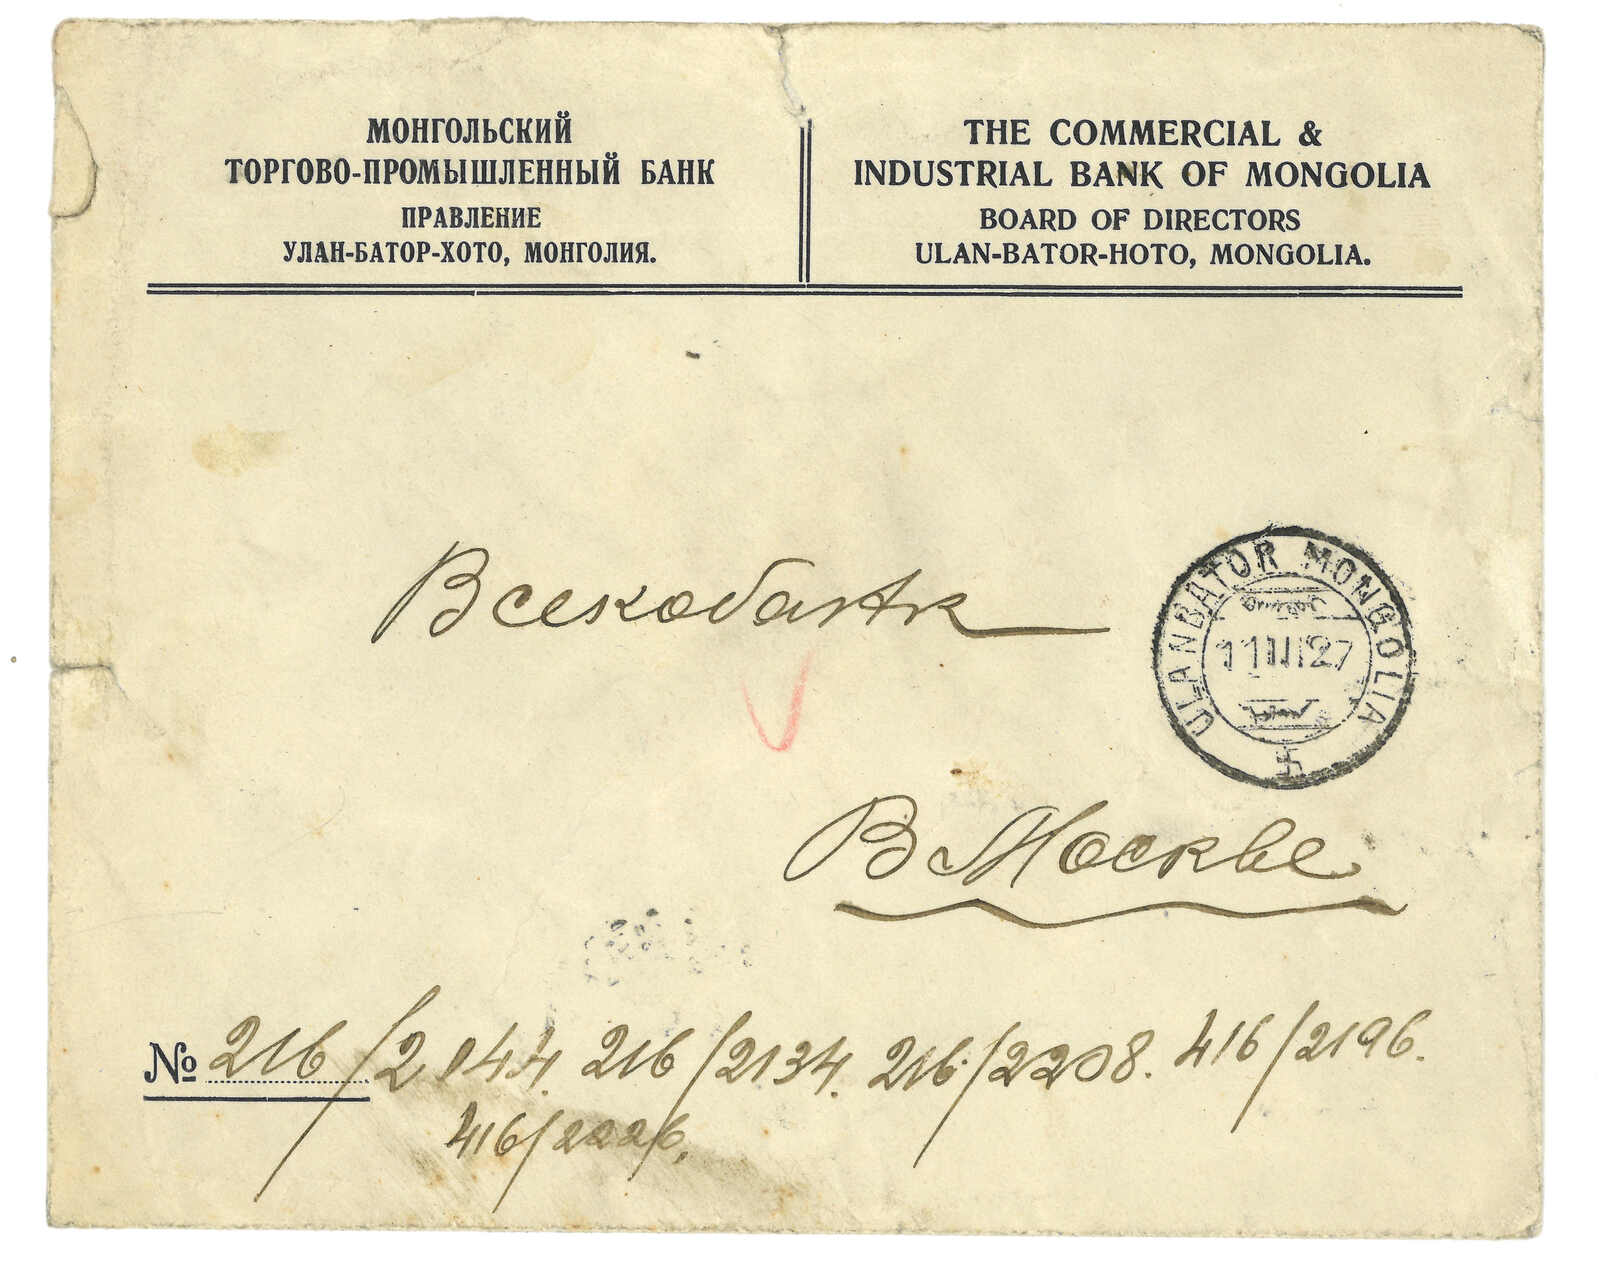 МОНГОЛЬСКИЙ
ТОРГОВО-ПРОМЫШЛЕННЫЙ БАНК
ПРАВЛЕНИЕ
УЛАН-БАТОР-ХОТО, МОНГОЛИЯ.
THE COMMERCIAL &
INDUSTRIAL BANK OF MONGOLIA
BOARD OF DIRECTORS
ULAN-BATOR-HOTO, MONGOLIA.
Всекобанк
ULANBATOR MONGOLIA
11 III 27
В Москве
№ 216/2044. 216/2134. 216/2208. 416/2196.
416/2226.